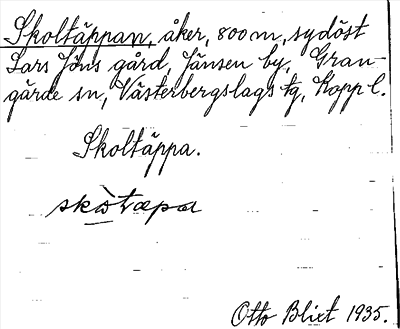 Skoltäppan, åker, 800 m, sydöst
Lars Jöns gård, Jänsen by, Gran-
gärde sn, Västerbergslags tg, Kopp l.
Skoltäppa.
skòtæpa
Otto Blixt 1935.